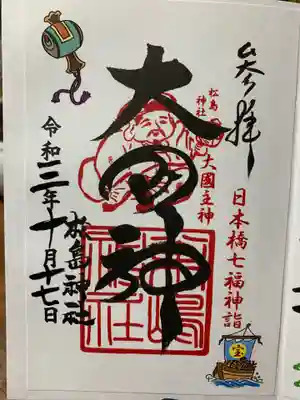 奉拝
日本橋七福神詣
松島神社
大國主神
大黒神
松島神社
令和三年十月十七日
松島神社
宝